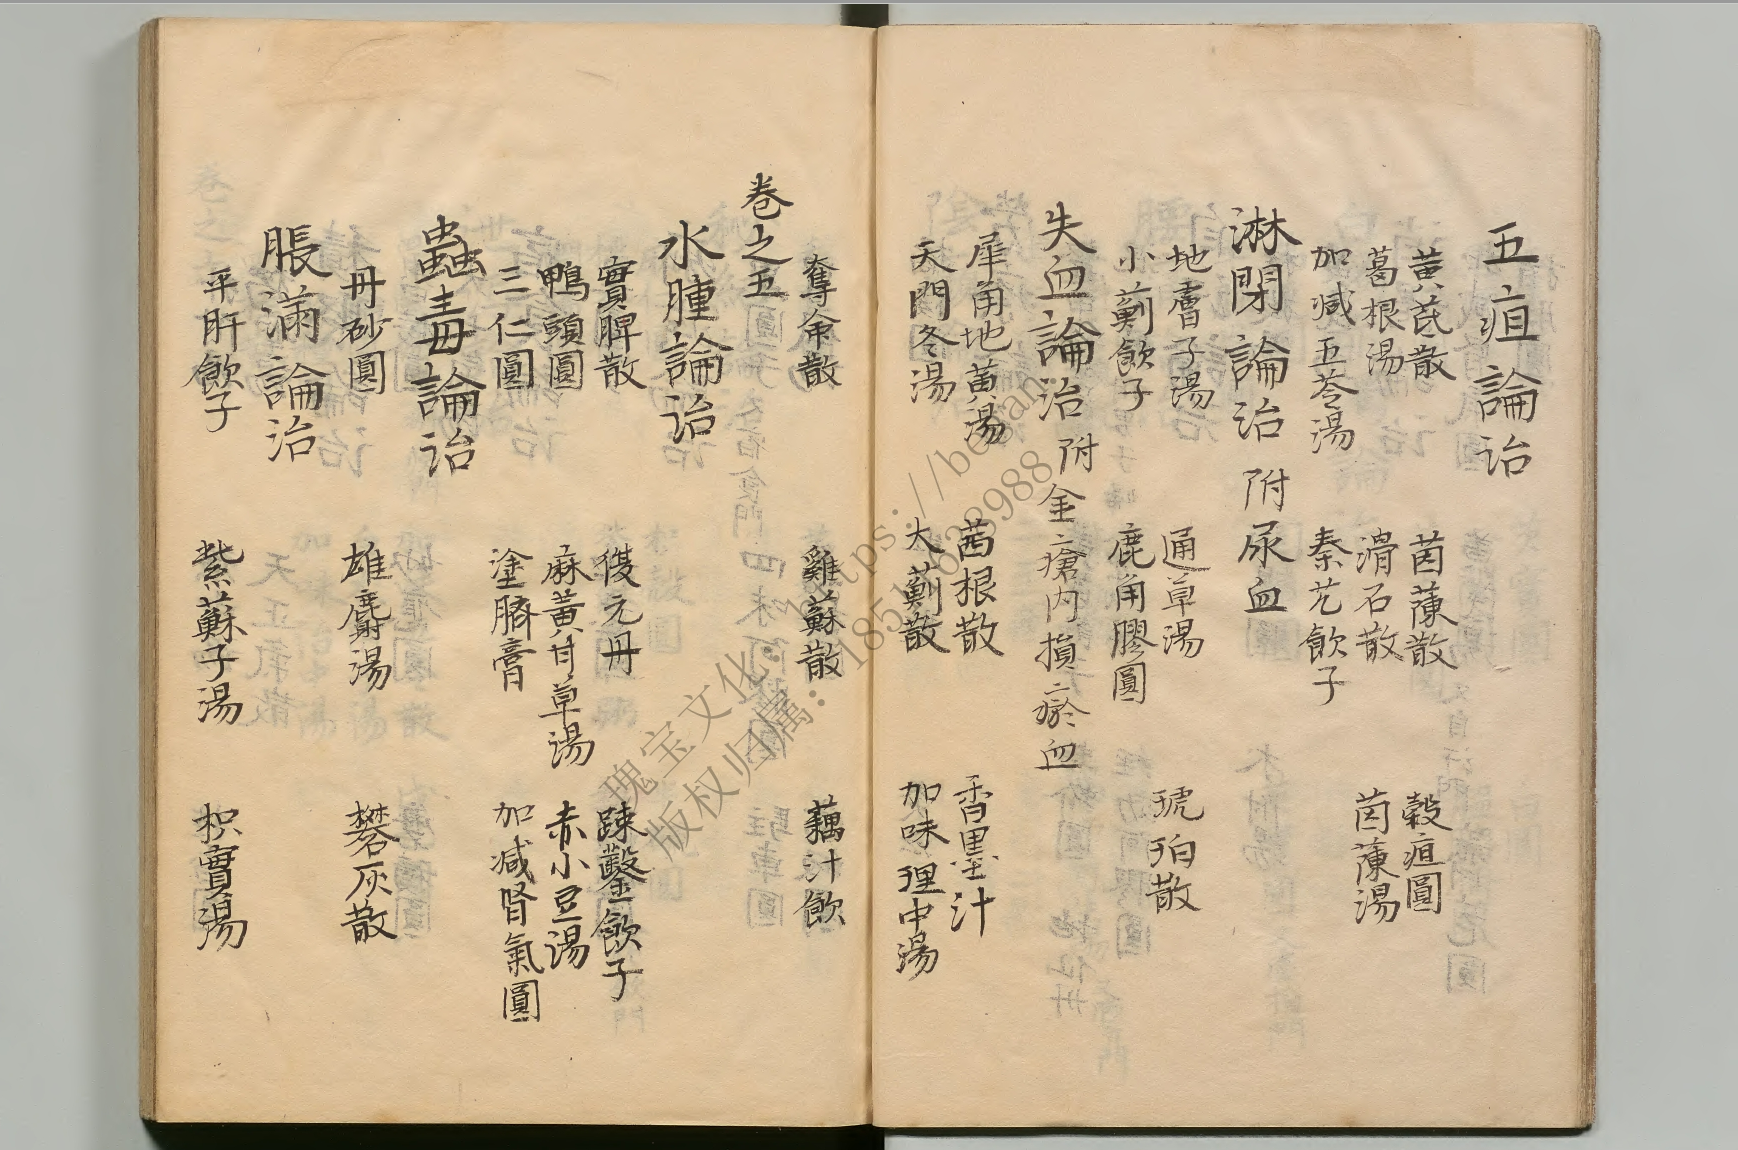 五疸論治
黄芪散 茵蔯散 穀疸圓
葛根湯 滑石散 茵蔯湯
加减五苓湯 秦艽飲子
淋閉論治 附尿血
地膚子湯 通草湯 琥珀散
小薊飲子 鹿角膠圓
失血論治 附金瘡内損瘀血
犀角地黄湯 茜根散 香墨汁
天門冬湯 大薊散 加味理中湯
奪命散 雞蘇散 藕汁飲
卷之五
水腫論治
實脾散 復元丹 踈鑿飲子
鴨頭圓 麻黄甘草湯 赤小豆湯
三仁圓 塗臍膏 加减腎氣圓
蟲毒論治
丹砂圓 雄麝湯 礬灰散
脹滿論治
平肝飲子 紫蘇子湯 枳實湯
瑰宝文化:https://beian.
版权归属:18515628988